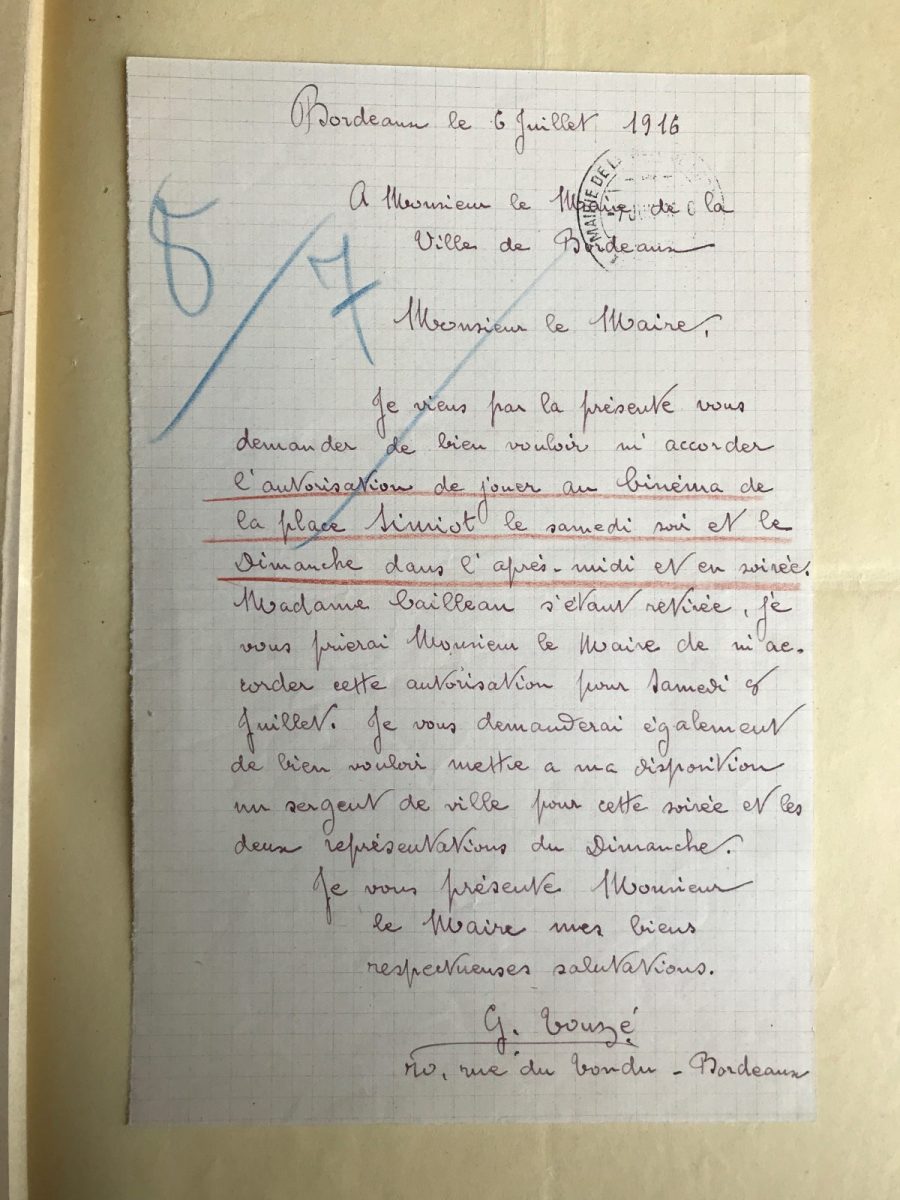 Bordeaux le 6 Juillet 1916
MAIRIE DE
A Monsieur le Maire de la
Ville de Bordeaux
8
7
Monsieur le Maire,
Je viens par la présente vous
demander de bien vouloir m'accorder
l'autorisation de jouer au Cinéma de
la place Simiot le samedi soir et le
Dimanche dans l'après-midi et en soirée.
Madame Cailleau s'étant retirée, je
vous prierai Monsieur le Maire de m'ac-
corder cette autorisation pour Samedi 8
Juillet. Je vous demanderai également
de bien vouloir mettre a ma disposition
un sergent de ville pour cette soirée et les
deux représentations du Dimanche.
Je vous présente Monsieur
le Maire mes biens
respectueuses salutations.
G. Touzé
70, rue du Tondu - Bordeaux